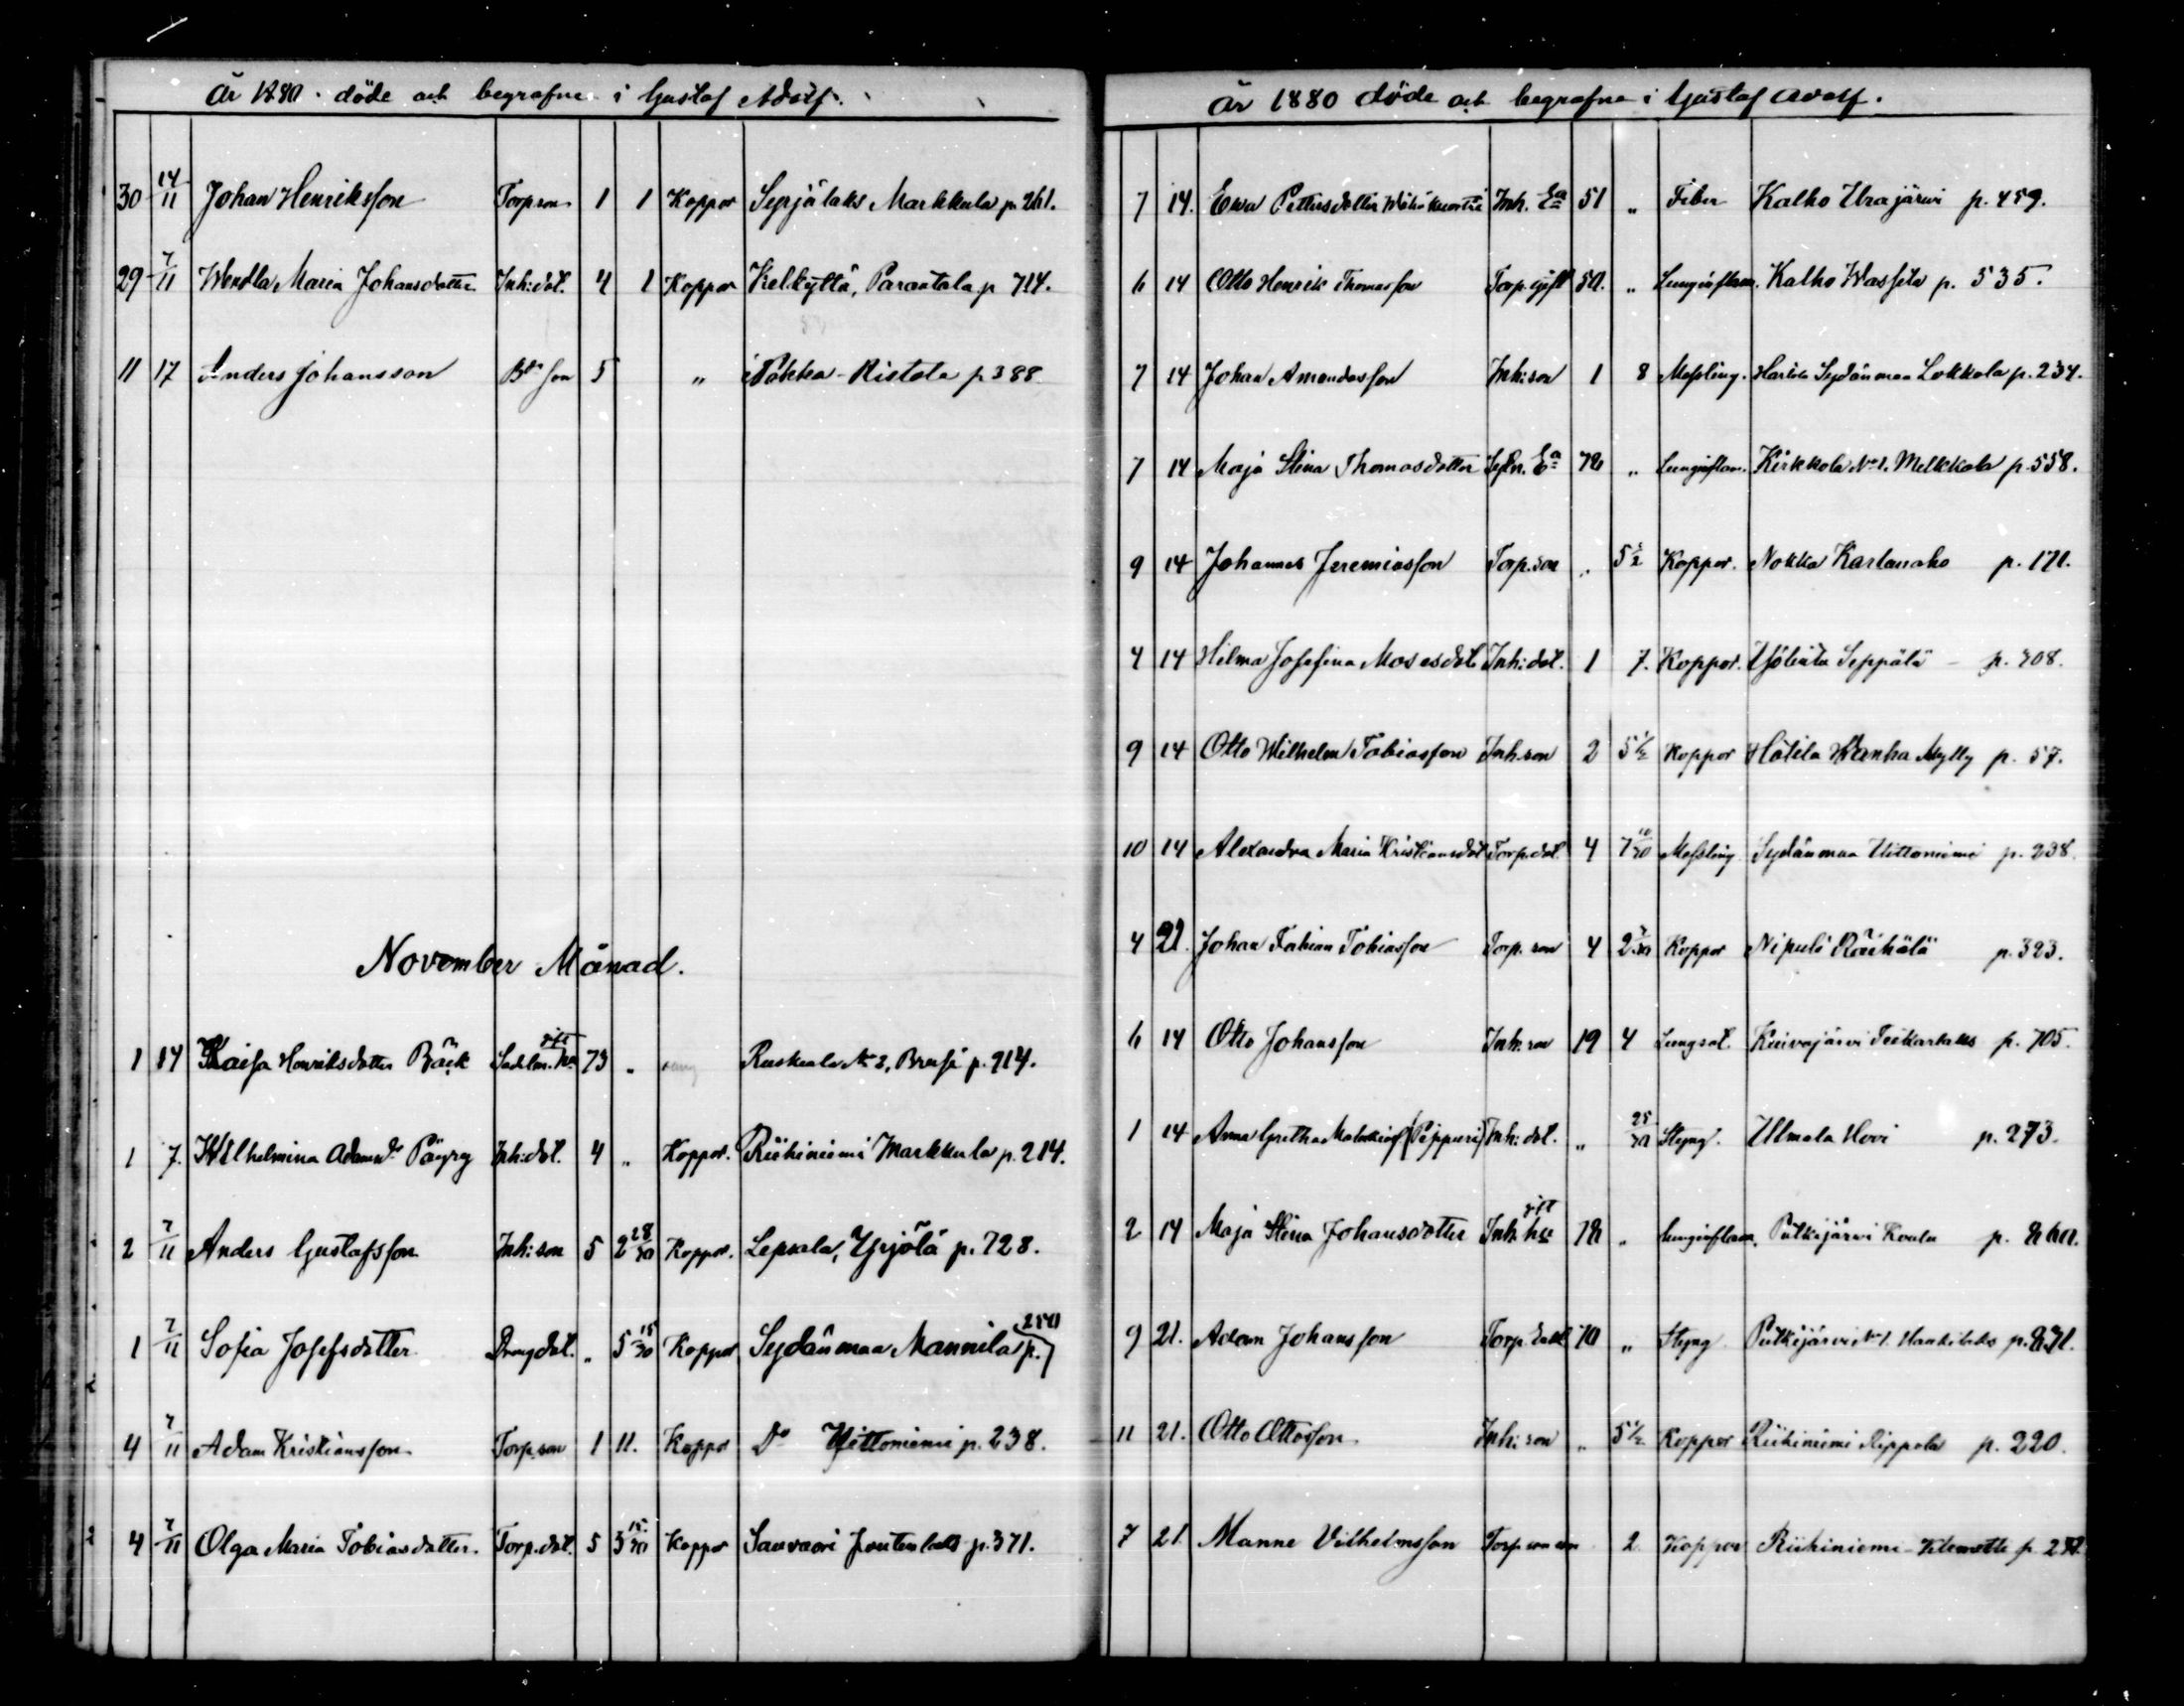 År 1880. döde och begrafne i Gustaf Adolf.
30 14/11 Johan Henriksson Torp.son 1 1 Koppor Syrjälaks Markkula p. 261.
29 7/11 Wendla Maria Johansdotter Inh:dot. 4 1 Koppor Kelkyttä, Parantala p 714.
11 17 Anders Johansson Bd son 5 " Pohka-Ristola p 388.
November Månad.
1 14 Kaisa Henriksdotter Bäck Sadelm. gift 73 " Ruskeala No 3, p. 914.
1 7. Wilhelmina Adamsdr Päyry Inh:dot. 4 " Koppor. Riihiniemi Markkula p. 214.
2 7/11 Anders Gustafsson Inh:son 5 2 28/30 Koppor. Lepsala, Yrjölä p. 728.
1 7/11 Sofia Josefsdotter Drengdot. " 5 15/30 Koppor Sydänmaa Mannila p. 250
4 7/11 Adam Kristiansson Torp.son 1 11. Koppor Do Uittoniemi p. 238.
4 7/11 Olga Maria Tobiasdotter. Torp.dot. 5 3 15/30 Koppor p. 371.
År 1880 döde och begrafne i Gustaf Adolf.
7 14. Ewa Pettersdotter Inh. Ea 51 " Feber Kalho Urajärwi p. 459.
6 14 Otto Henrik Thomasson Torp. gift 50. " Lunginflam. Kalho Wassila p. 535.
7 14 Johan Amandasson Inh:son 1 8 Messling. Sydänmaa Lokkola p. 234.
7 14 Maja Stina Thomasdotter Ea " Lunginflam. Kirkkola No 1. Melkkola p. 558.
9 14 Johannes Jeremiasson Torp.son " 5 1/2 Koppor. Nokka Karlanaho p. 171.
4 14 Hilma Josefina Mosesdot. Inh:dot. 1 7. Koppor. Seppälä p. 408.
9 14 Otto Wilhelm Tobiasson Inh.son 2 5 1/2 Koppor Hölilä Wanha Mylly p. 57.
10 14 Alexandra Maria Kristiansdot Torp.dot. 4 7 10/30 Messling Sydänmaa Uittoniemi p. 238.
4 21. Johan Fabian Tobiasson Torp. son 4 Koppor Nipuli Räihälä p. 323.
6 14 Otto Johansson Inh. son 19 4 Lungsot. Kuivajärvi p. 705.
1 14 Anna Gretha (Pippuri) Inh:dot. " 25/30 Styng. Ullmala Hovi p. 273.
2 14 Maja Stina Johansdotter Inh. hu gift " Lunginflam. Putkijärvi p.
9 21. Adam Johansson Torp. Enkl. 70 " Styng Putkijärvi No 1. p.
11 21. Otto Ottosson Inh: son " 5 1/2 Koppor Riihiniemi Rippola p. 220.
7 21. Manne Vilhelmsson Torp son 2 Koppor Riihiniemi-Klemetti p.